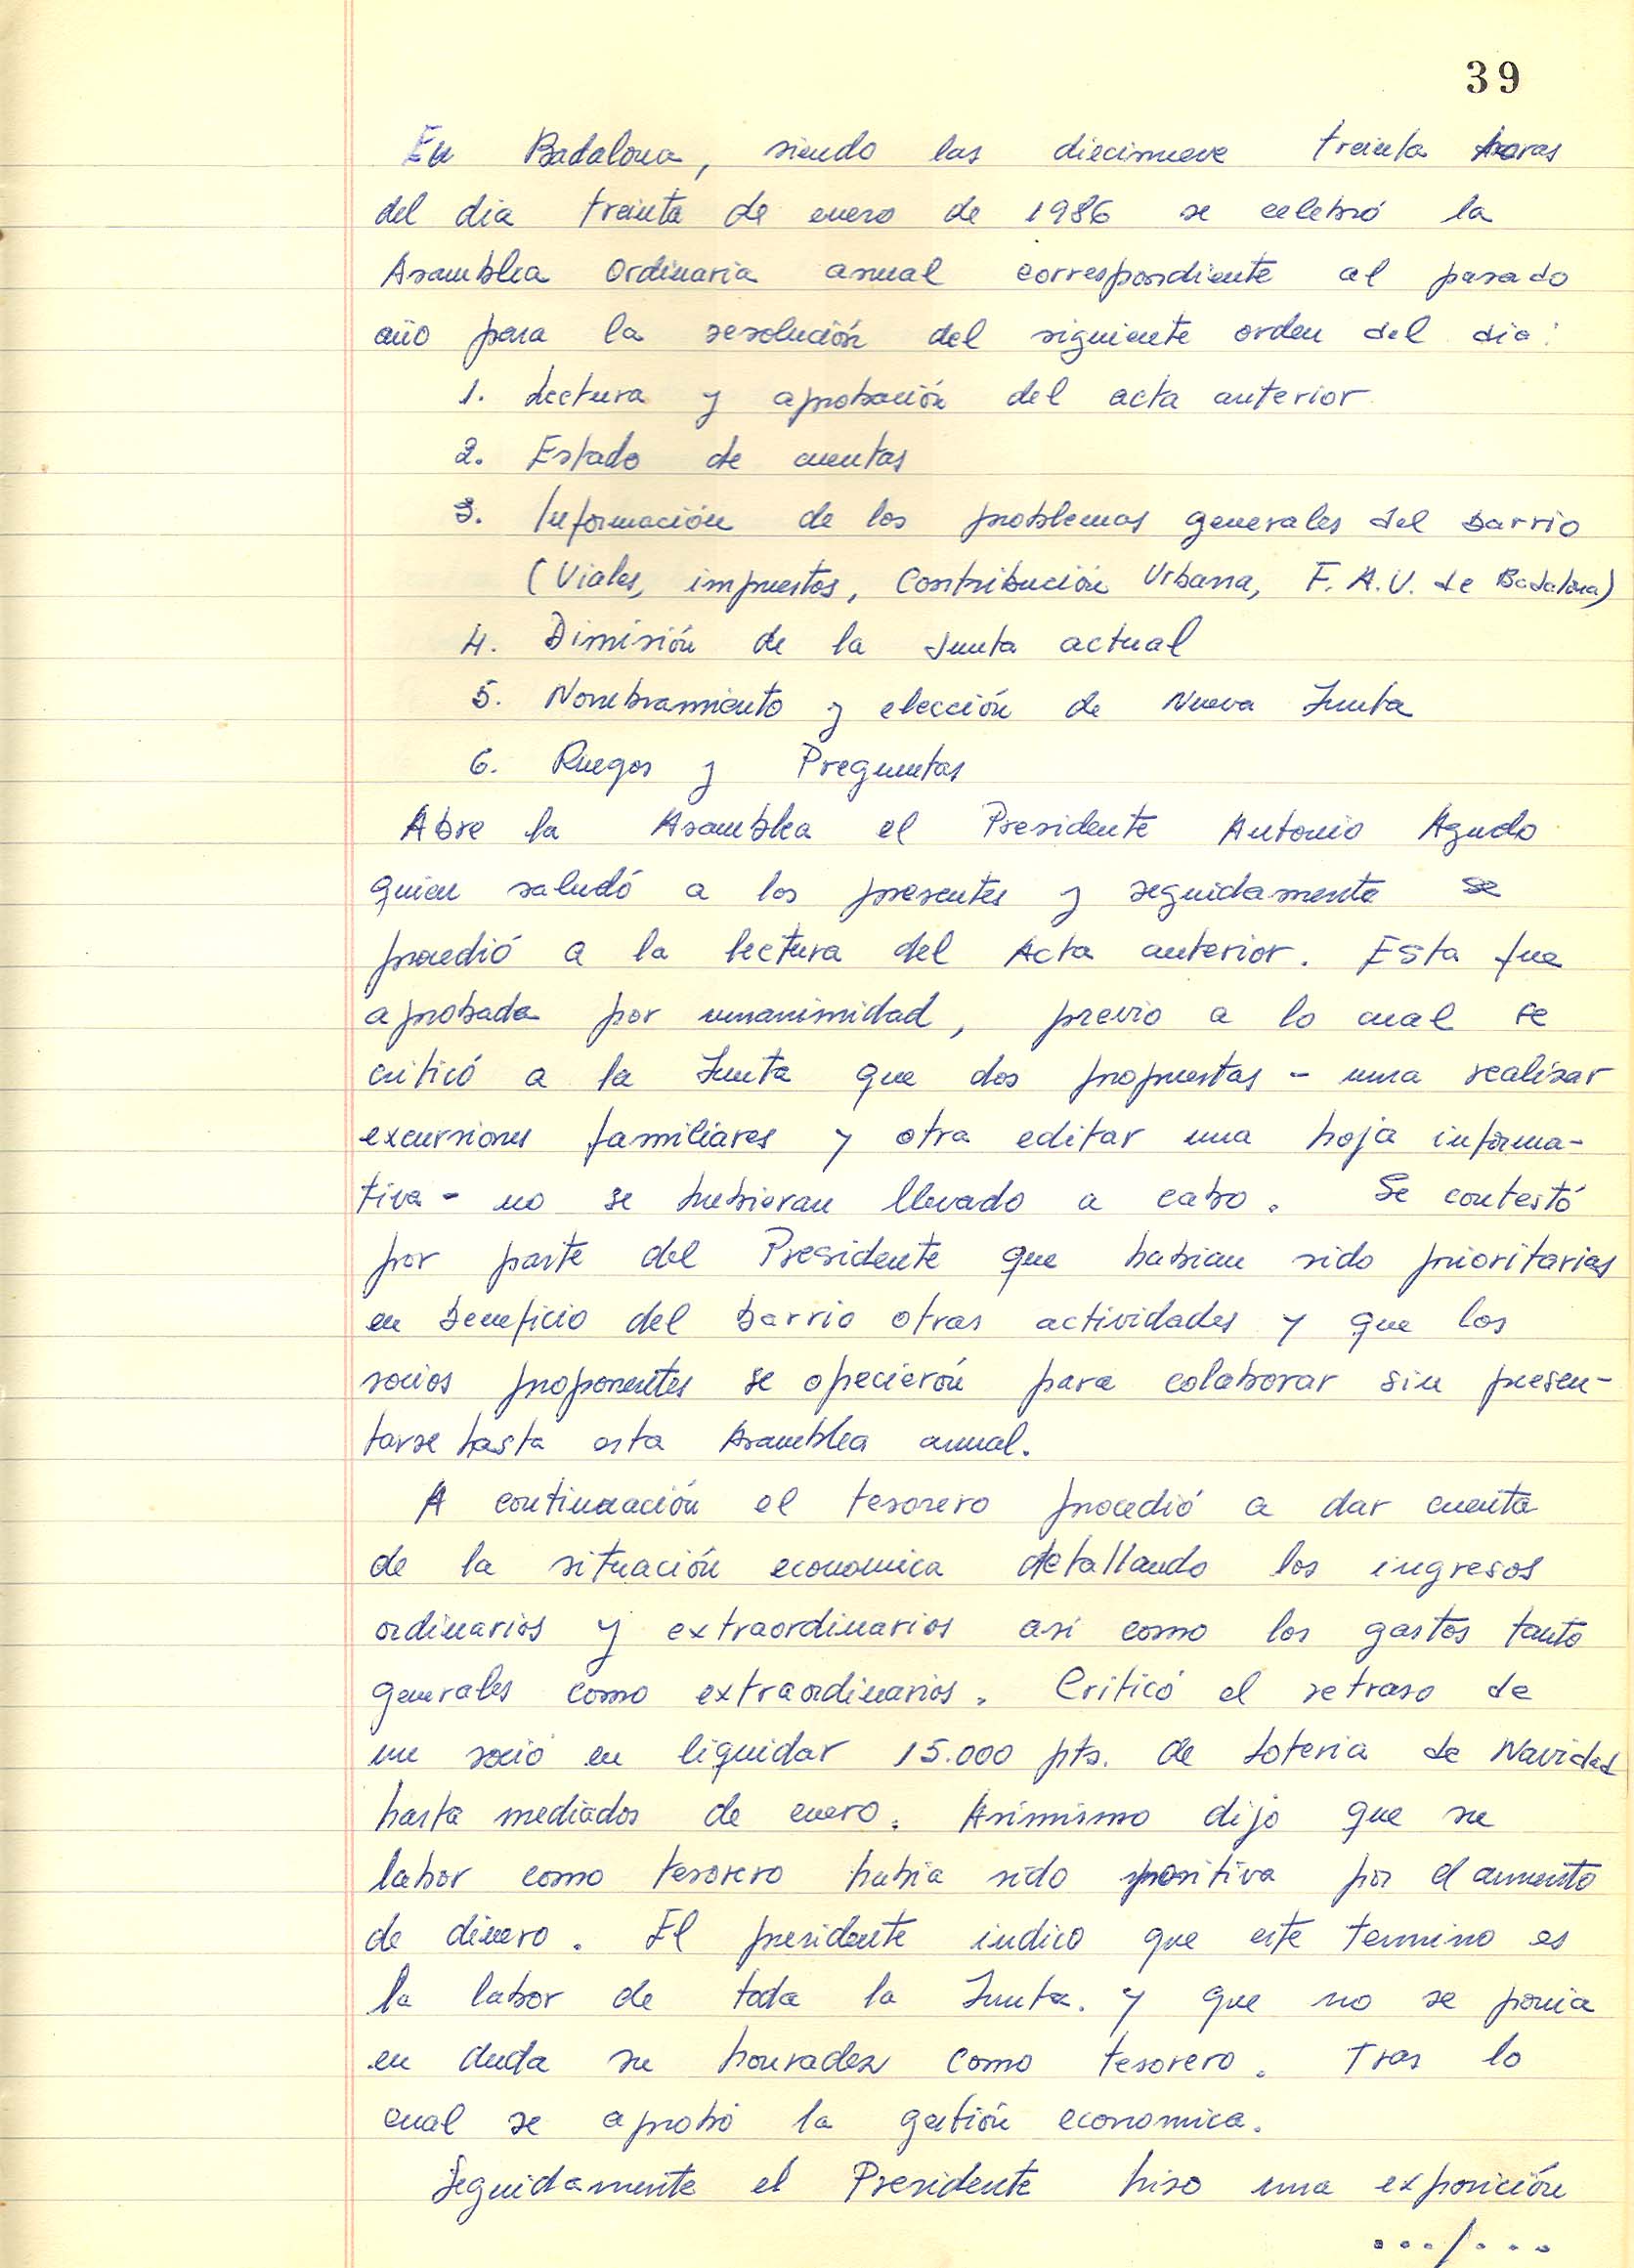 39
En Badalona, siendo las diecinueve treinta horas
del dia treinta de enero de 1986 se celebró la
Asamblea Ordinaria anual correspondiente al pasado
año para la resolución del siguiente orden del dia:
1. Lectura y aprobación del acta anterior
2. Estado de cuentas
3. Información de los problemas generales del barrio
(Viales, impuestos, Contribución Urbana, F.A.V. de Badalona)
4. Dimisión de la Junta actual
5. Nombramiento y elección de Nueva Junta
6. Ruegos y Preguntas
Abre la Asamblea el Presidente Antonio Agudo
quien saludó a los presentes y seguidamente se
procedió a la lectura del Acta anterior. Esta fue
aprobada por unanimidad, previo a lo cual se
criticó a la Junta que dos propuestas - una realizar
excursiones familiares y otra editar una hoja informa-
tiva - no se hubieran llevado a cabo. Se contestó
por parte del Presidente que habian sido prioritarias
en beneficio del barrio otras actividades y que los
socios proponentes se opecierón para colaborar sin presen-
tarse hasta esta Asamblea anual.
A continuación el tesorero procedió a dar cuenta
de la situación economica detallando los ingresos
ordinarios y extraordinarios asi como los gastos tanto
generales como extraordinarios. Criticó el retraso de
un socio en liquidar 15.000 pts. de Loteria de Navidad
hasta mediados de enero. Asimismo dijo que su
labor como tesorero habia sido positiva por el aumento
de dinero. El presidente indico que este termino es
la labor de toda la Junta. y que no se ponia
en duda su honradez como tesorero. Tras lo
cual se aprobó la gestión economica.
Seguidamente el Presidente hiso una exposición
.../...